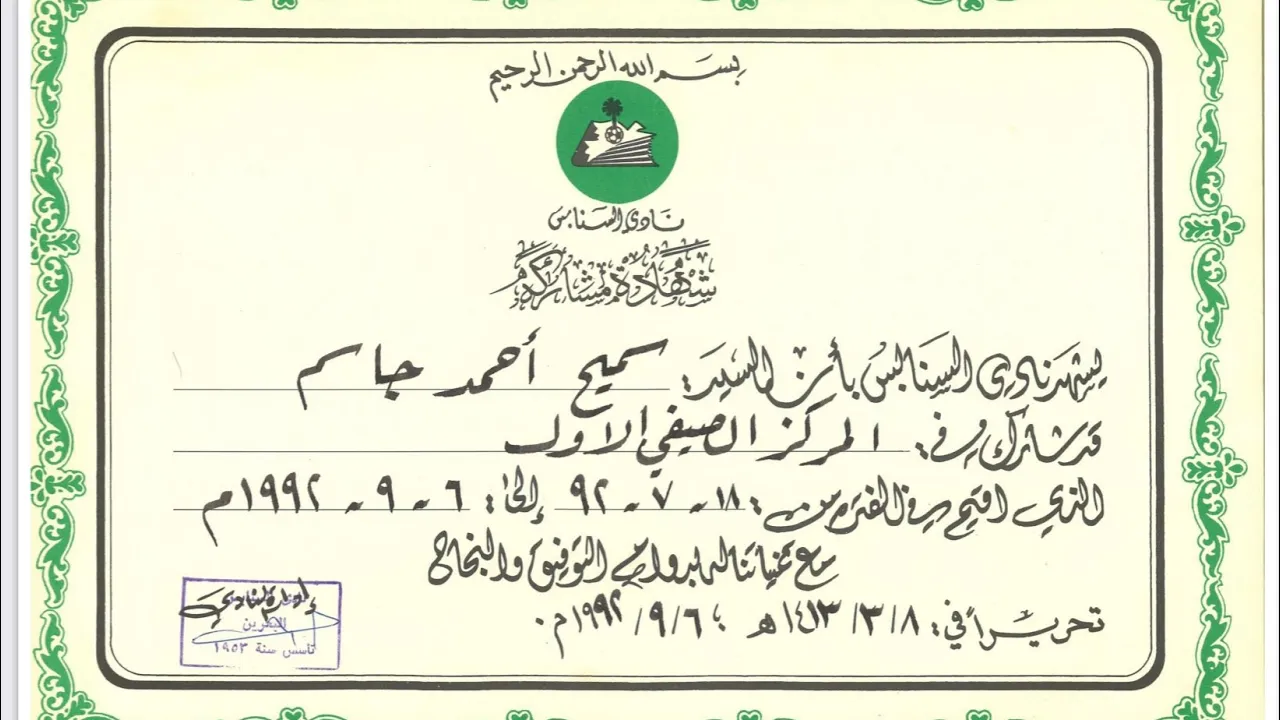 بسم الله الرحمن الرحيم
نادي السنابس
شهادة مشاركة
يشهد نادي السنابس بأن السيد: سميح أحمد جاسم
قد شارك في: المركز الصيفي الاول
الذي اقيم في الفترة من: ١٨ - ٧ - ٩٢ إلى: ٦ - ٩ - ١٩٩٢م
مع تمنياتنا له بدوام التوفيق والنجاح
تحريراً في: ١٤١٣/٣/٨هـ ؛ ١٩٩٢/٩/٦م.
إدارة النادي
البحرين
تأسس سنة ١٩٥٣